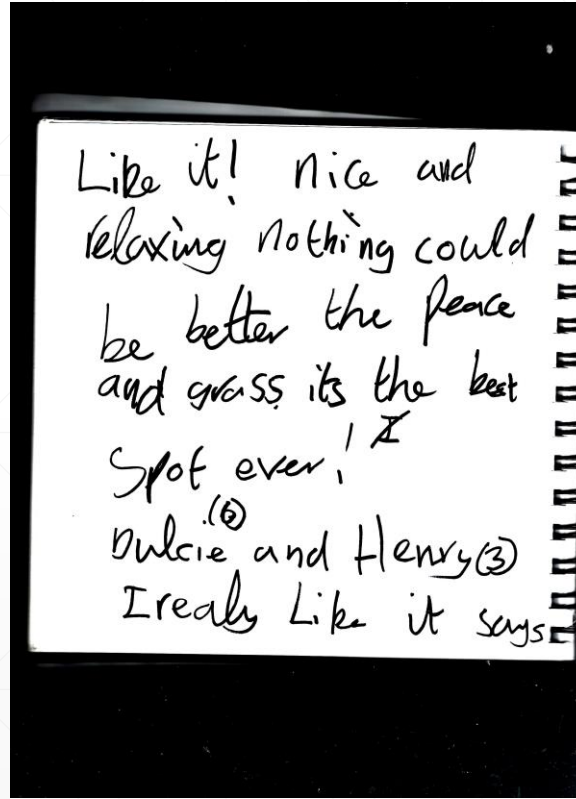 Like it! nice and
relaxing nothing could
be better the peace
and grass its the best
Spot ever!
(6)
Dulcie and Henry (3)
I realy Like it says